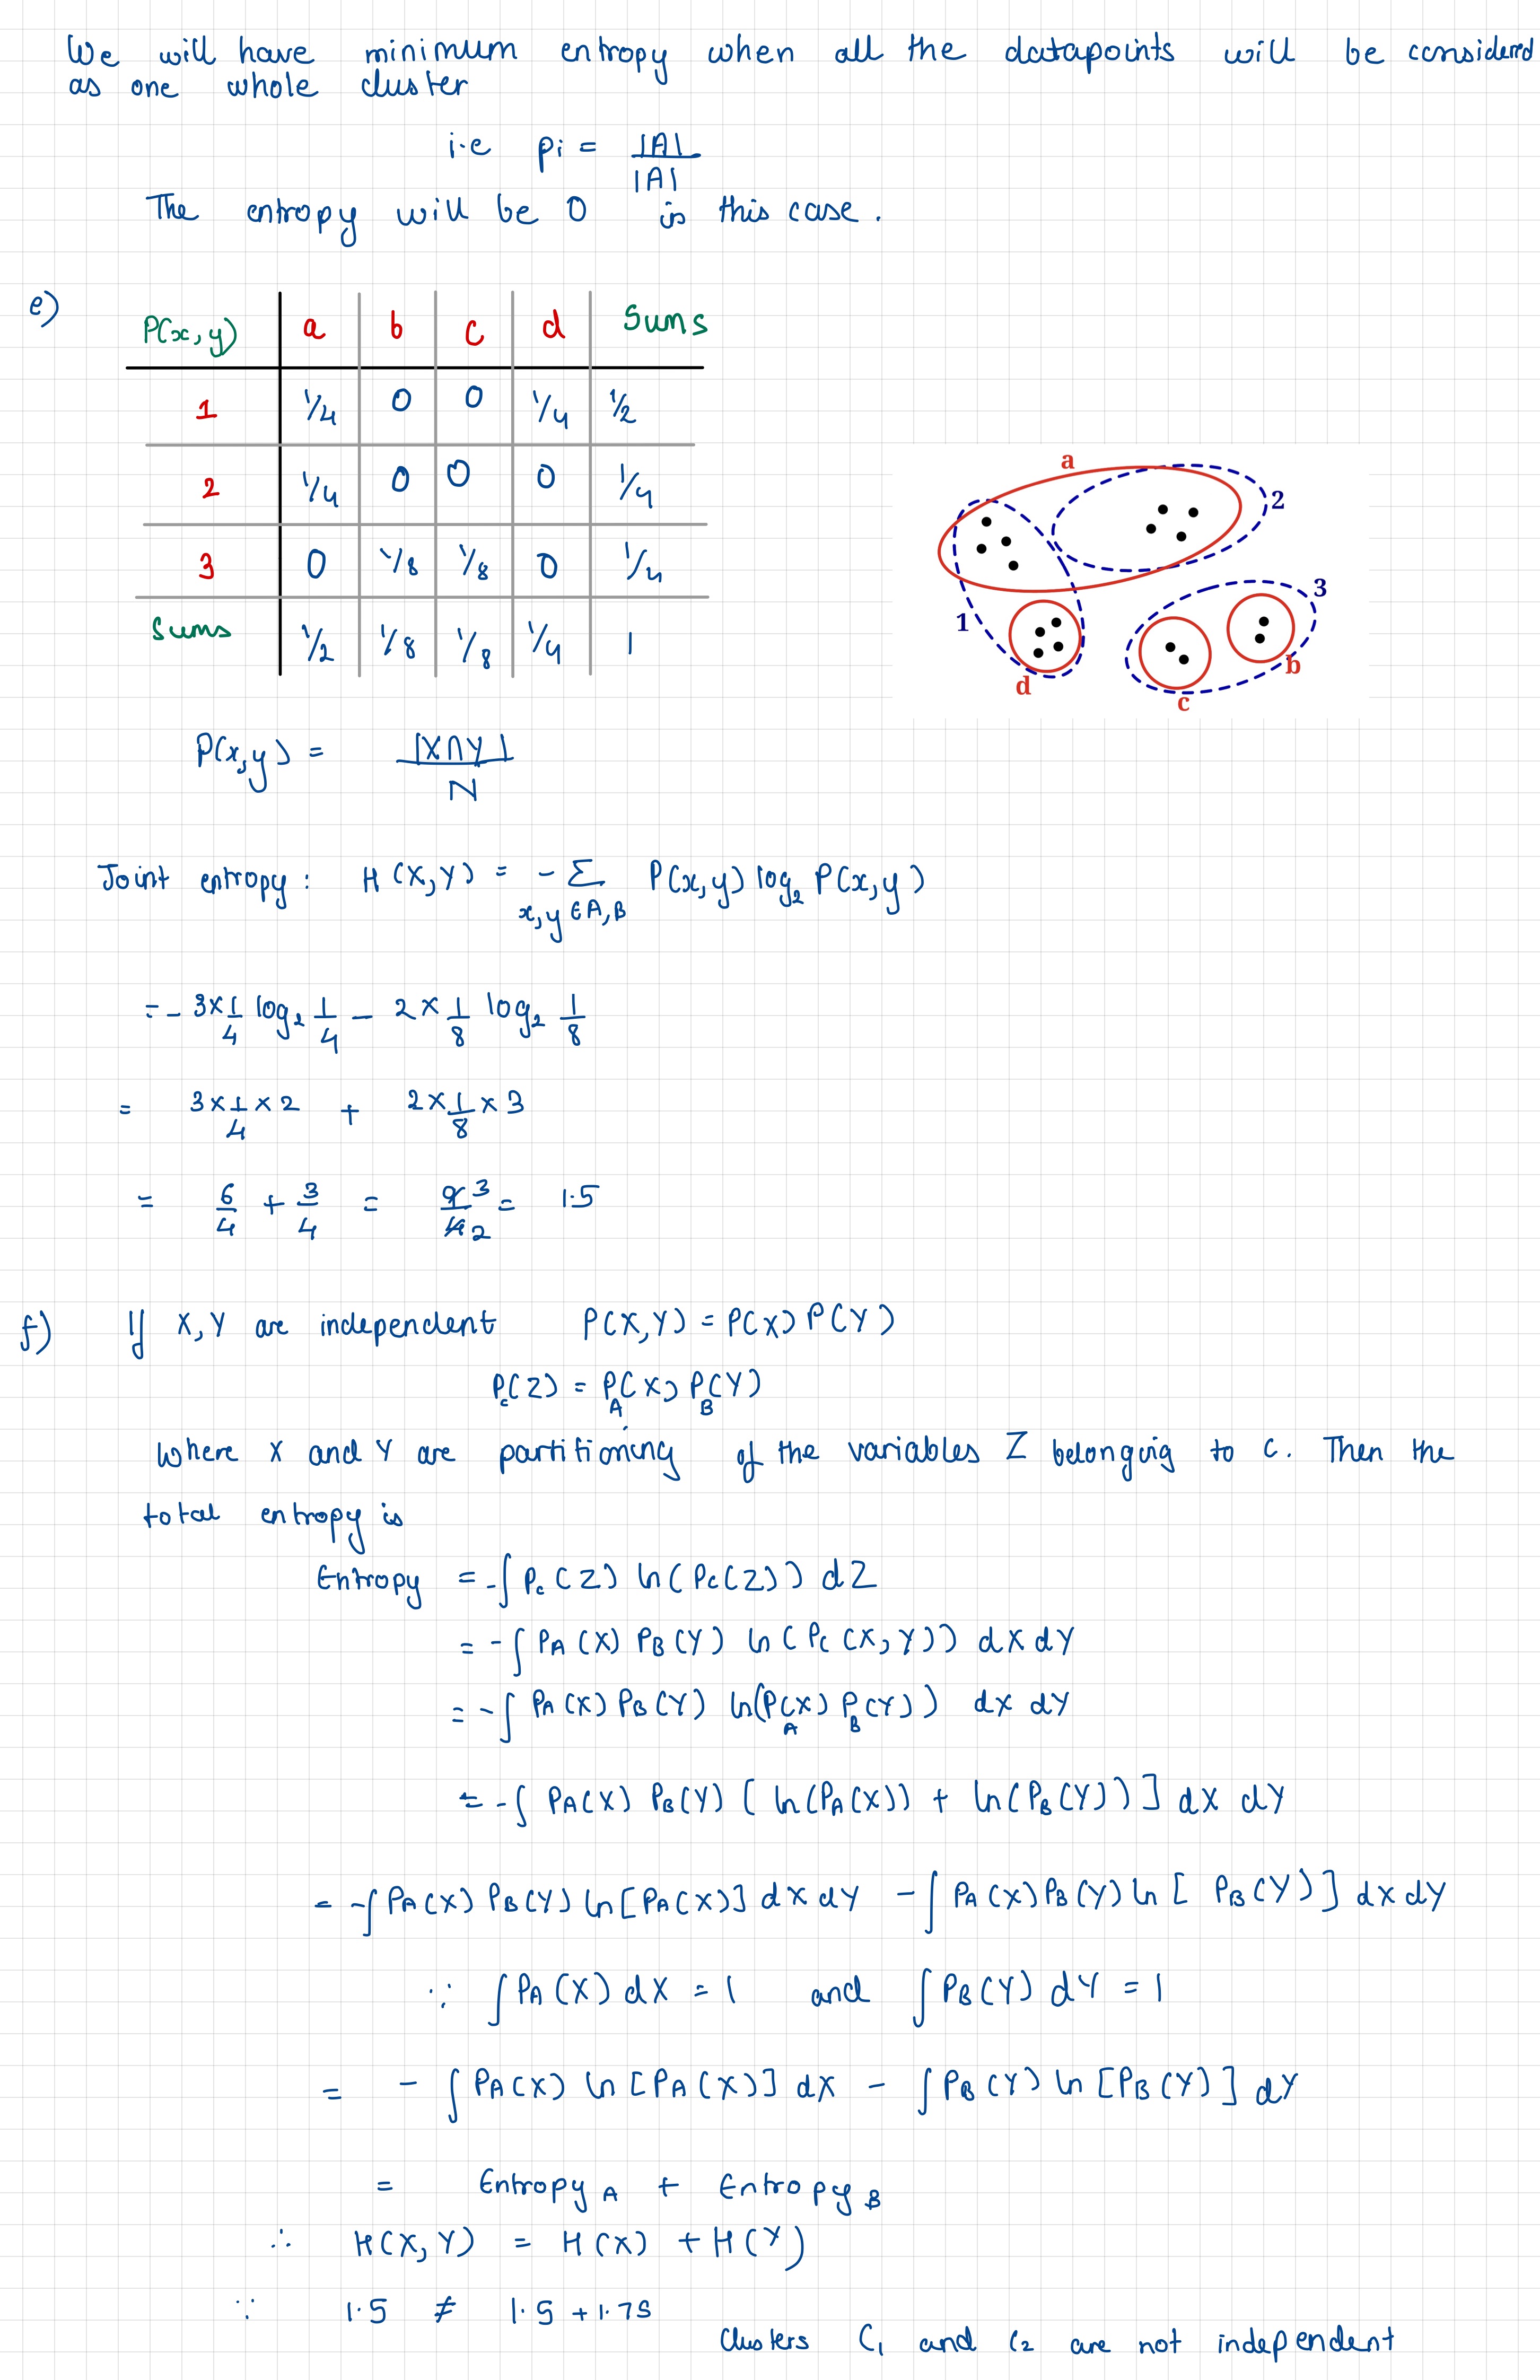 We will have minimum entropy when all the datapoints will be considered
as one whole cluster
i.e pi = |A|
|A|
The entropy will be 0 in this case.
e)
P(x,y) a b c d Sums
1 1/4 0 0 1/4 1/2
2 1/4 0 0 0 1/4
3 0 1/8 1/8 0 1/4
Sums 1/2 1/8 1/8 1/4 1
a
2
3
1
b
d
c
P(x,y) = |X∩Y|
N
Joint entropy: H(X,Y) = -Σ P(x,y) log2 P(x,y)
x,y ∈ A,B
= - 3×1/4 log2 1/4 - 2×1/8 log2 1/8
= 3×1/4×2 + 2×1/8×3
= 6/4 + 3/4 = 9/4 3/2 = 1.5
f) If X,Y are independent P(X,Y) = P(X) P(Y)
Pc(Z) = PA(X) PB(Y)
Where X and Y are partitioning of the variables Z belonging to C. Then the
total entropy is
Entropy = -∫ Pc(Z) ln(Pc(Z)) dZ
= -∫ PA(X) PB(Y) ln(Pc(X,Y)) dX dY
= -∫ PA(X) PB(Y) ln(PA(X) PB(Y)) dX dY
= -∫ PA(X) PB(Y) [ln(PA(X)) + ln(PB(Y))] dX dY
= -∫ PA(X) PB(Y) ln[PA(X)] dX dY - ∫ PA(X) PB(Y) ln[PB(Y)] dX dY
∵ ∫ PA(X) dX = 1 and ∫ PB(Y) dY = 1
= -∫ PA(X) ln[PA(X)] dX - ∫ PB(Y) ln[PB(Y)] dY
= Entropy A + Entropy B
∴ H(X,Y) = H(X) + H(Y)
∵ 1.5 ≠ 1.5 + 1.75
Clusters C1 and C2 are not independent